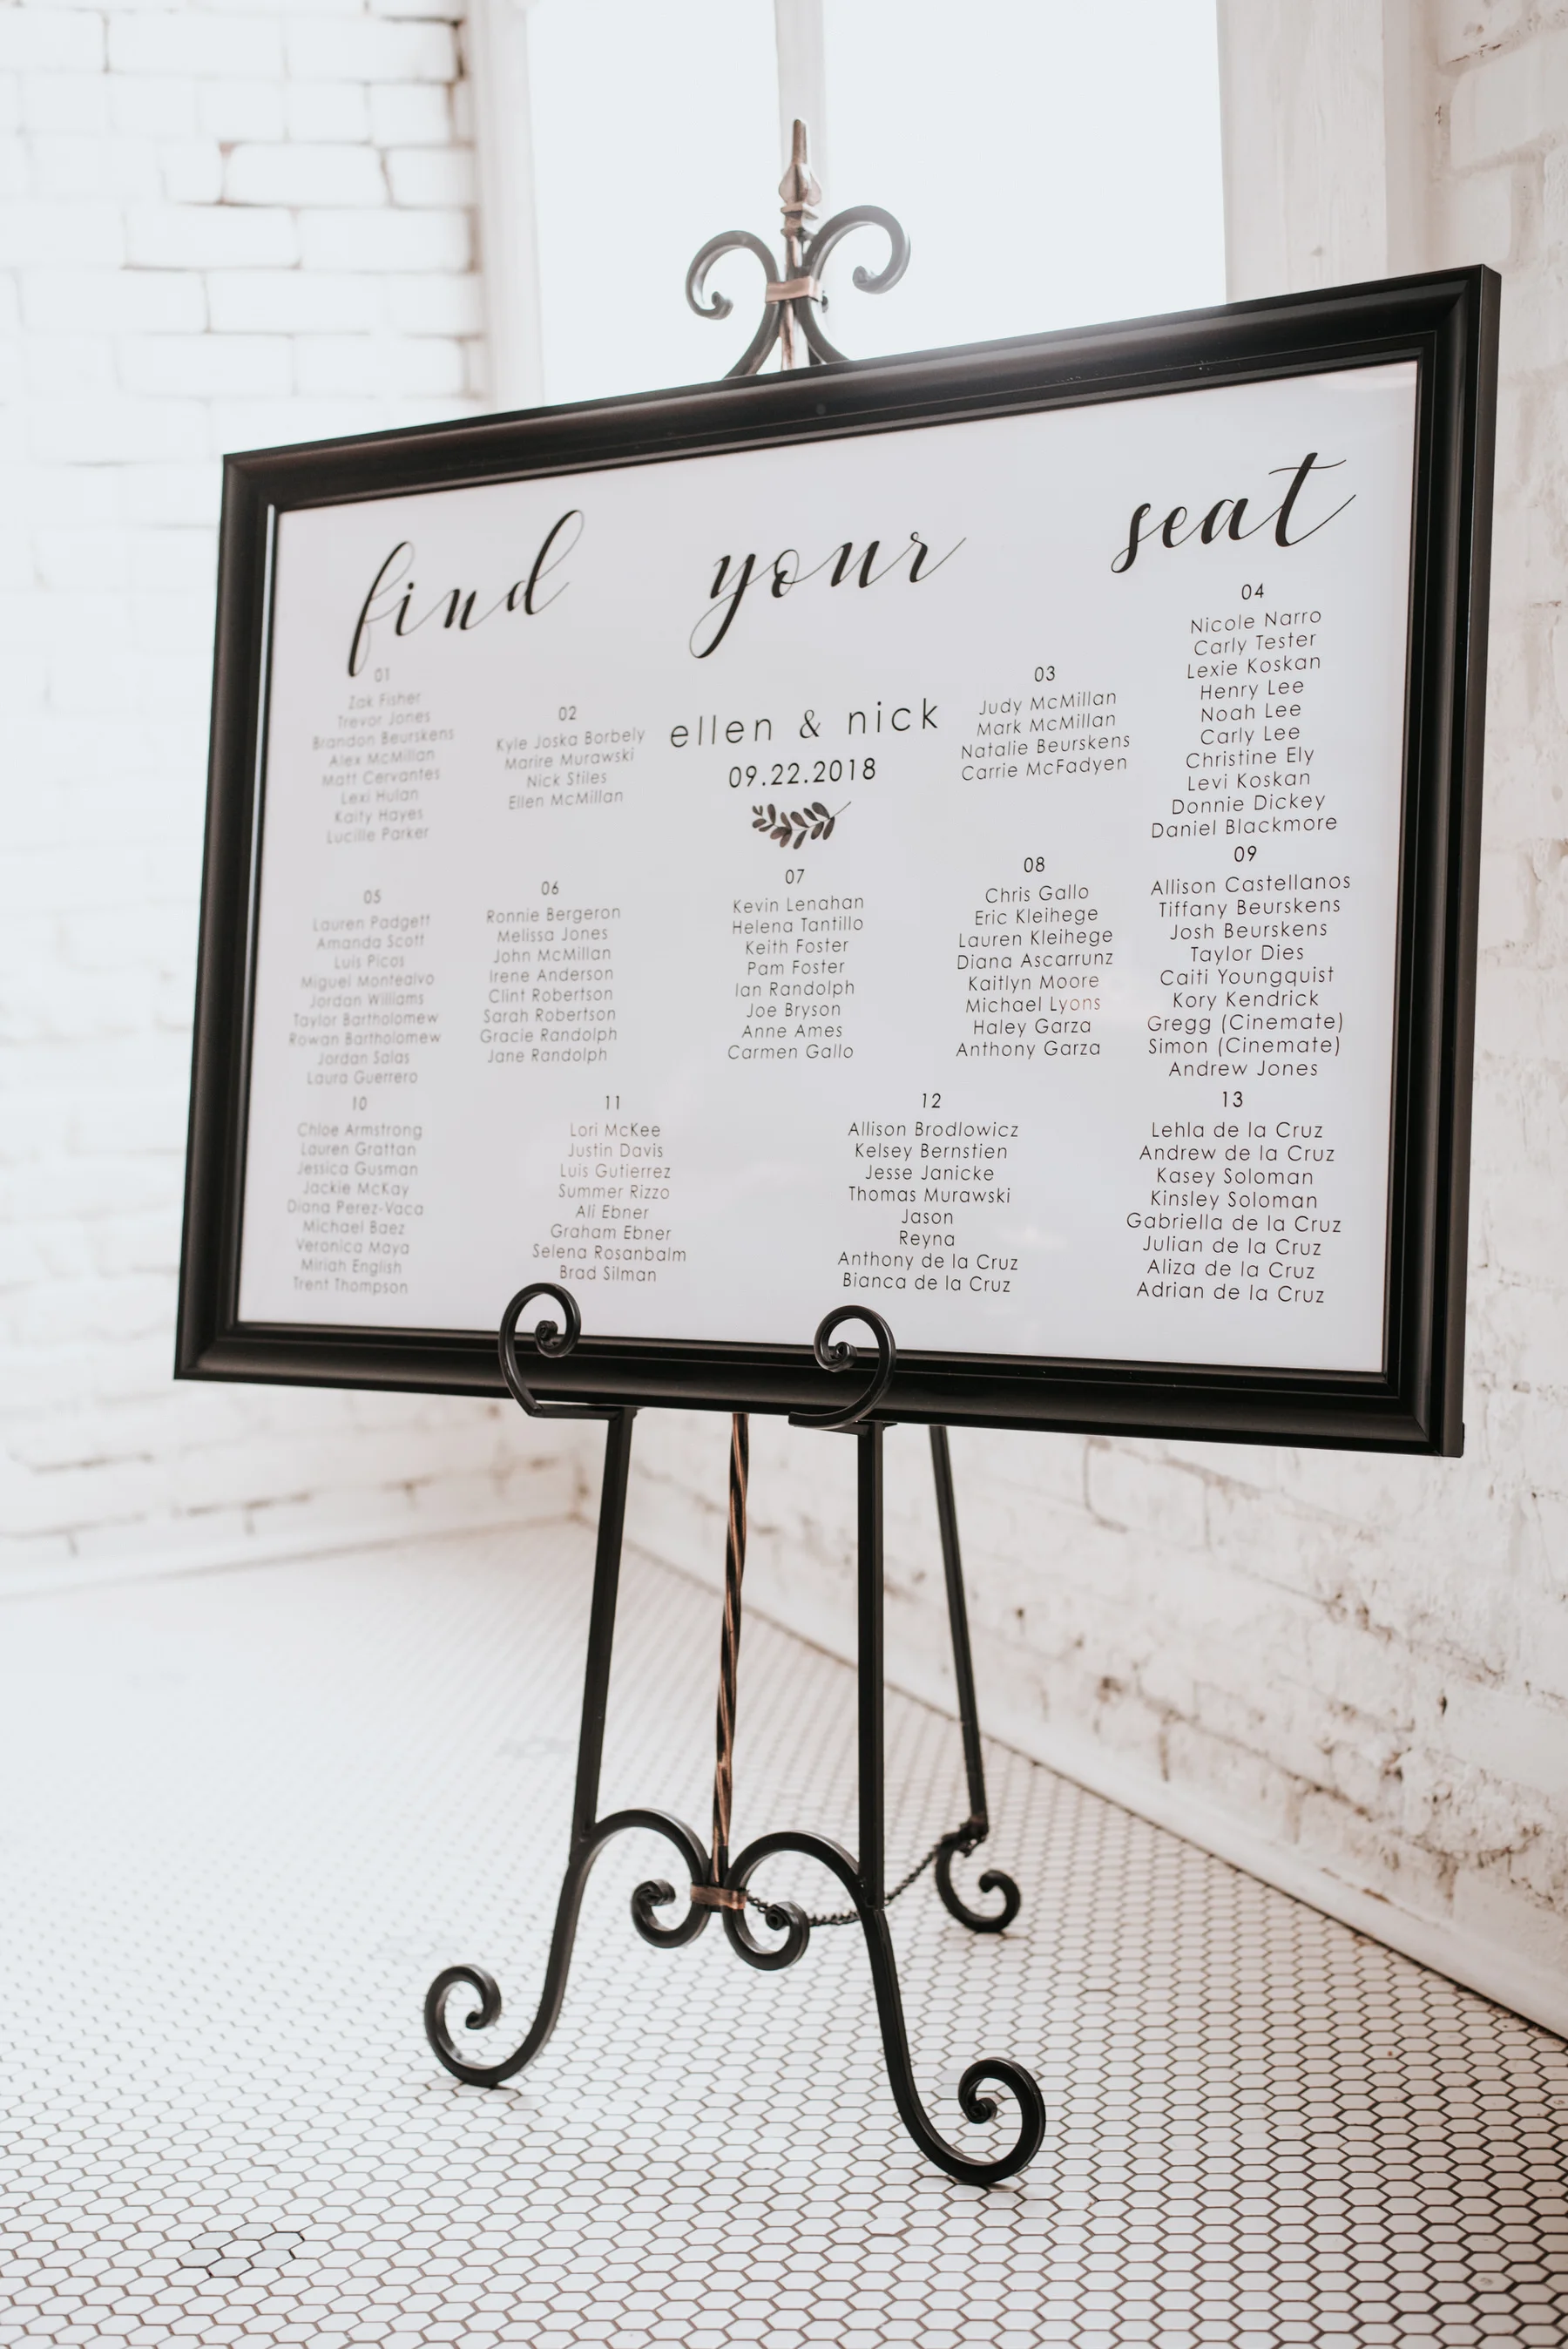 find your seat
ellen & nick
09.22.2018
01
Zak Fisher
Trevor Jones
Brandon Beurskens
Alex McMillan
Matt Cervantes
Lexi Hulan
Kaity Hayes
Lucille Parker
02
Kyle Joska Borbely
Marire Murawski
Nick Stiles
Ellen McMillan
03
Judy McMillan
Mark McMillan
Natalie Beurskens
Carrie McFadyen
04
Nicole Narro
Carly Tester
Lexie Koskan
Henry Lee
Noah Lee
Carly Lee
Christine Ely
Levi Koskan
Donnie Dickey
Daniel Blackmore
05
Lauren Padgett
Amanda Scott
Luis Picos
Miguel Montealvo
Jordan Williams
Taylor Bartholomew
Rowan Bartholomew
Jordan Salas
Laura Guerrero
06
Ronnie Bergeron
Melissa Jones
John McMillan
Irene Anderson
Clint Robertson
Sarah Robertson
Gracie Randolph
Jane Randolph
07
Kevin Lenahan
Helena Tantillo
Keith Foster
Pam Foster
Ian Randolph
Joe Bryson
Anne Ames
Carmen Gallo
08
Chris Gallo
Eric Kleihege
Lauren Kleihege
Diana Ascarrunz
Kaitlyn Moore
Michael Lyons
Haley Garza
Anthony Garza
09
Allison Castellanos
Tiffany Beurskens
Josh Beurskens
Taylor Dies
Caiti Youngquist
Kory Kendrick
Gregg (Cinemate)
Simon (Cinemate)
Andrew Jones
10
Chloe Armstrong
Lauren Grattan
Jessica Gusman
Jackie McKay
Diana Perez-Vaca
Michael Baez
Veronica Maya
Miriah English
Trent Thompson
11
Lori McKee
Justin Davis
Luis Gutierrez
Summer Rizzo
Ali Ebner
Graham Ebner
Selena Rosanbalm
Brad Silman
12
Allison Brodlowicz
Kelsey Bernstien
Jesse Janicke
Thomas Murawski
Jason
Reyna
Anthony de la Cruz
Bianca de la Cruz
13
Lehla de la Cruz
Andrew de la Cruz
Kasey Soloman
Kinsley Soloman
Gabriella de la Cruz
Julian de la Cruz
Aliza de la Cruz
Adrian de la Cruz